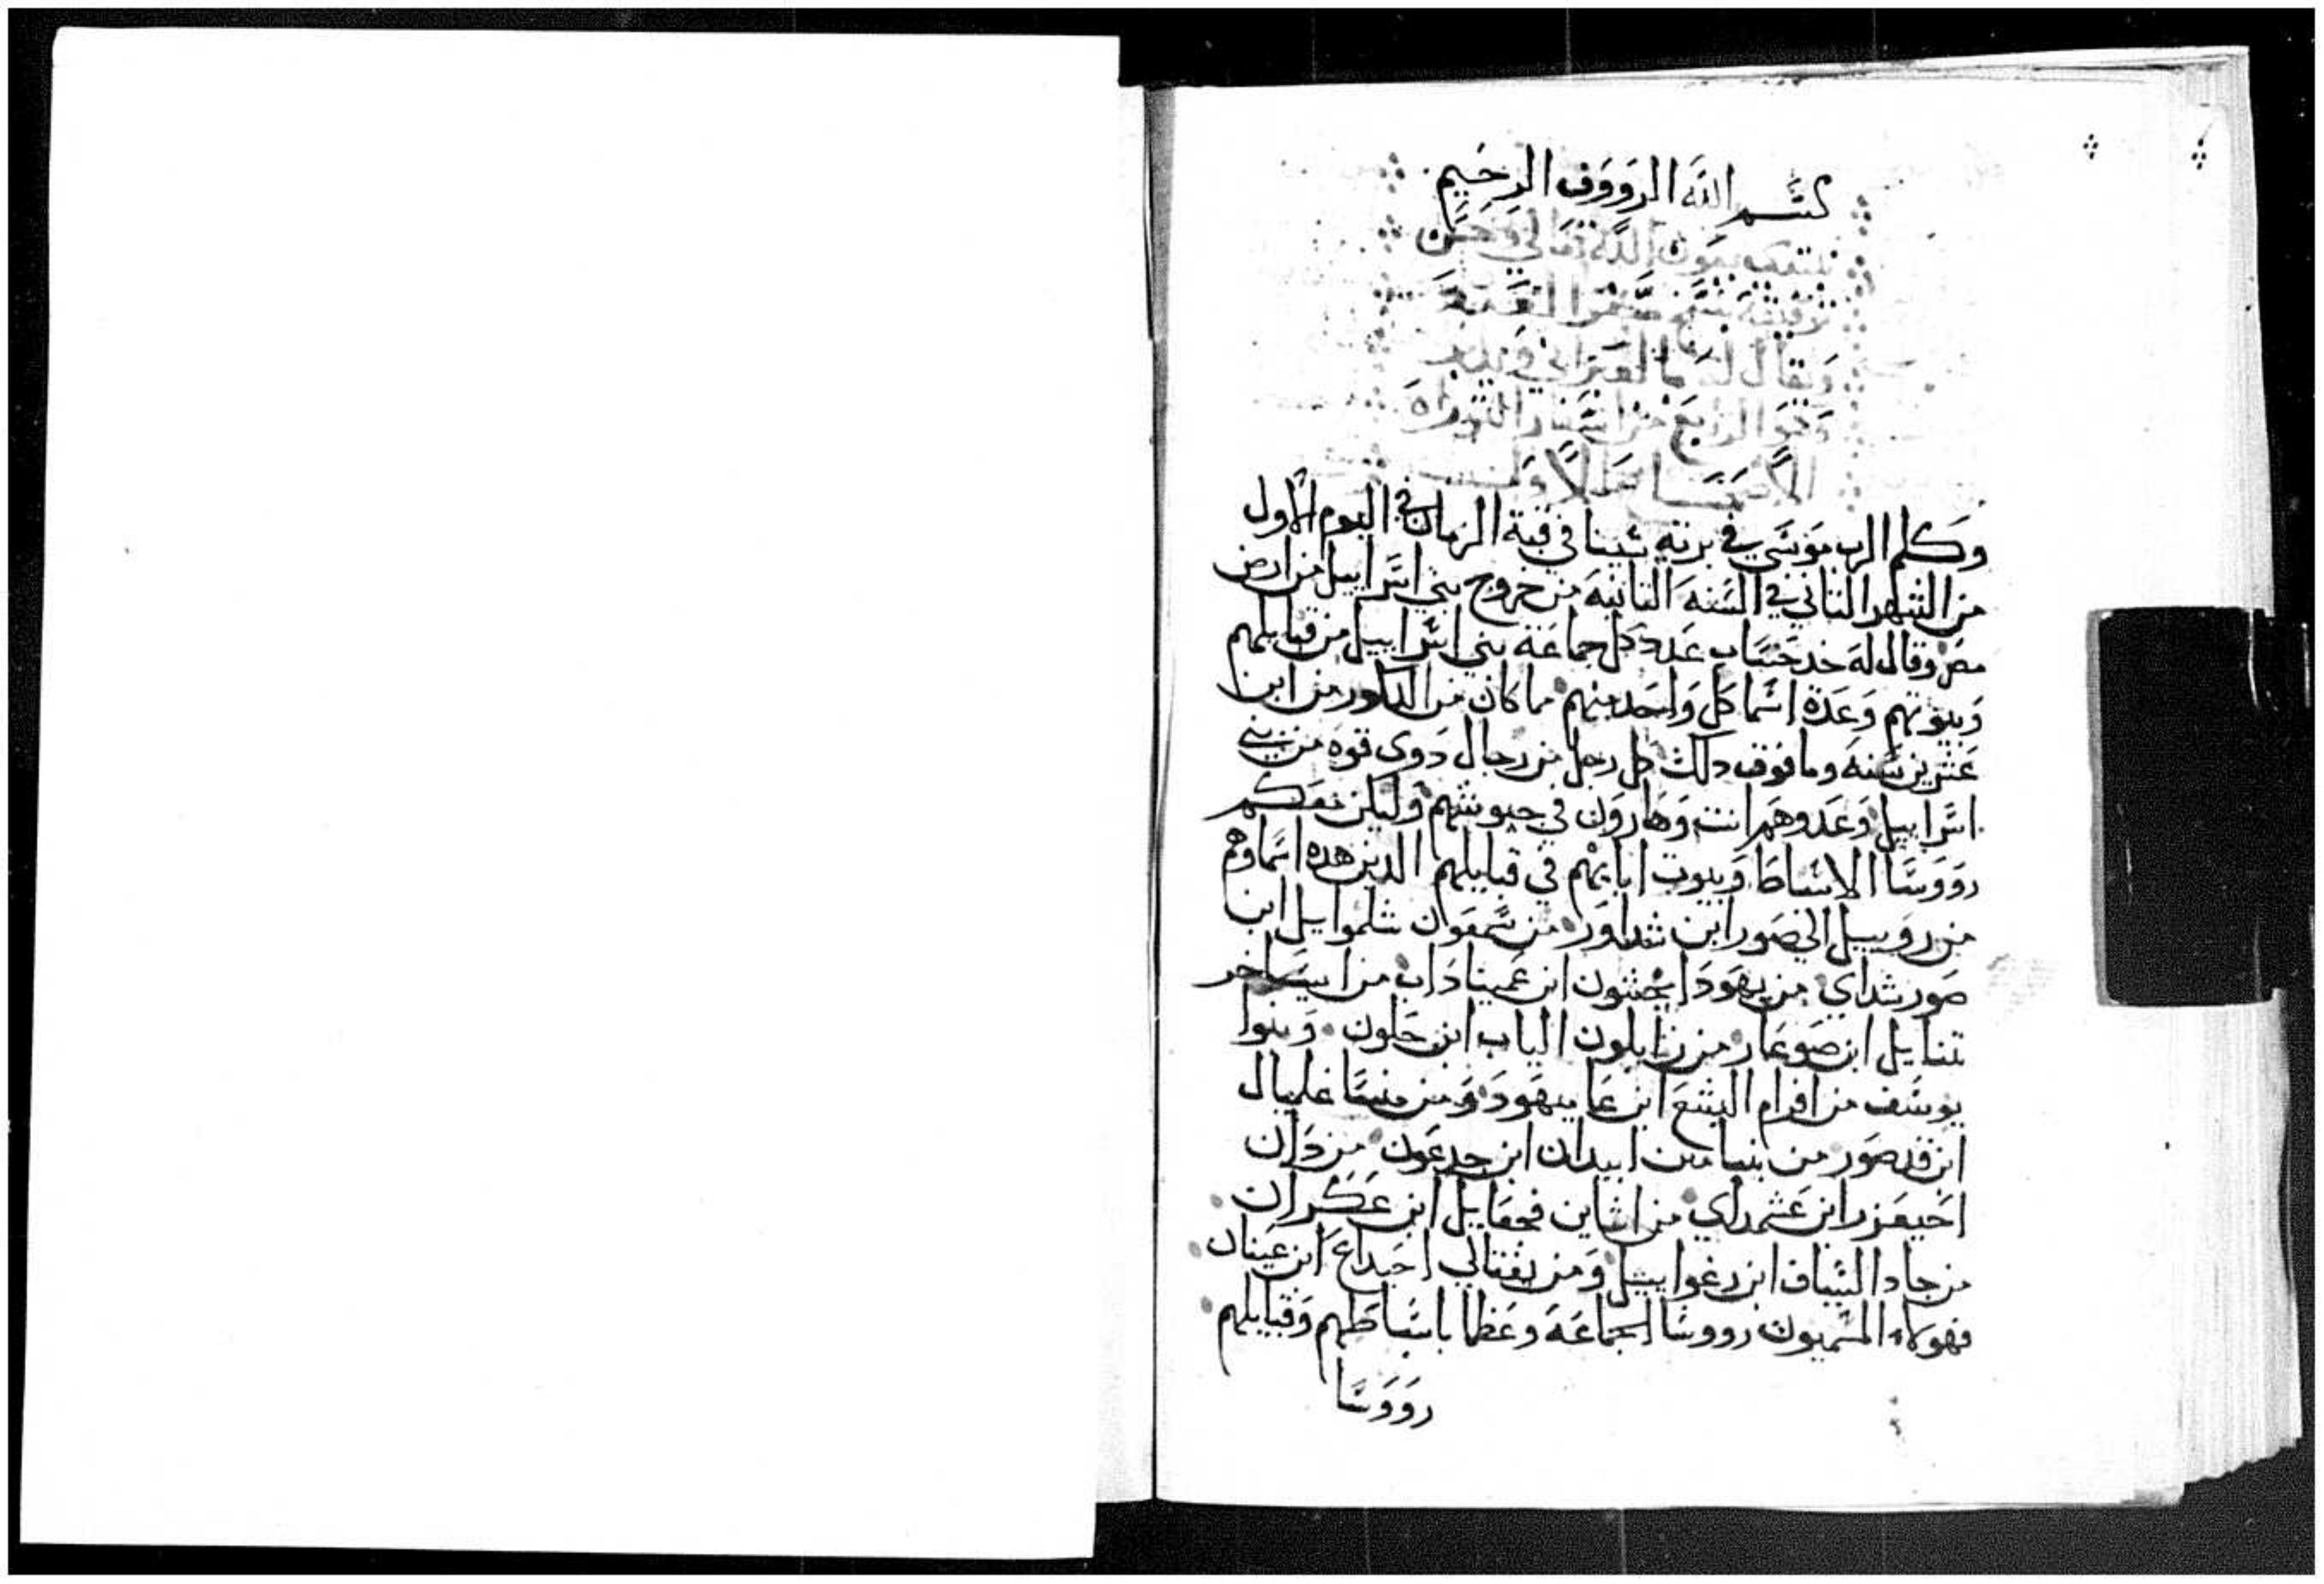 بسم الله الرووف الرحيم
نبتدي بعون الله تعالى وحسن
توفيقه بنسخ سفر العدد
ويقال له بالعبراني
وهو الرابع من اسفار التوراه
الاصحاح الاول
وكلم الرب موسى في بريه سينا في قبة الزمان في اليوم الاول
من الشهر الثاني في السنه الثانيه من خروج بني اسراييل من ارض
مصر وقال له خد حساب عدد كل جماعة بني اسراييل من قبايلهم
وبيوتهم وعدة اسما كل واحد منهم ما كان من الدكور من ابن
عشرين سنه وما فوق دلك كل رجل من رجال دوي قوه من بني
اسراييل وعدوهم انت وهارون في جيوشهم وليكن معكم
رووسا الاسباط وبيوت ابايهم في قبايلهم الدين هده اسماوهم
من روبييل اليصور ابن شداور من سمعون شلموايل ابن
صورشداي من يهودا نحشون ابن عميناداب من ايساخر
نتنايل ابن صوعار من زابلون الياب ابن حلون وبنوا
يوسف من افرام اليشع ابن عاميهود ومن منسا غمليال
ابن فدصور من بنيامين ابيدان ابن جدعون من دان
احيعزر ابن عشمداي من اشاير فجعايل ابن عكران
من جاد الساف ابن رغواييل ومن يفتالي احيداع ابن عينان
فهولاء المسميون رووسا الجماعه وعظما باسباطهم وقبايلهم
رووسا